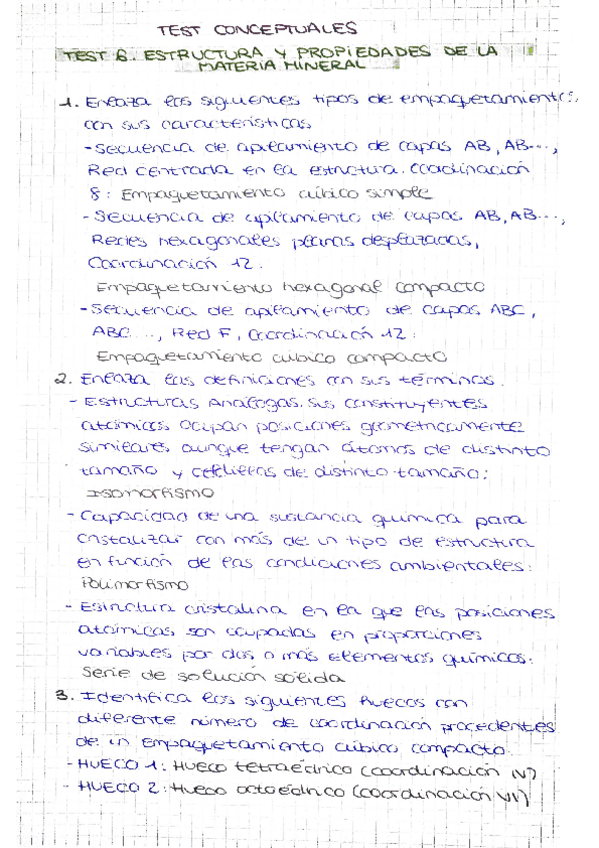 TEST CONCEPTUALES
TEST 6. ESTRUCTURA Y PROPIEDADES DE LA
MATERIA MINERAL
1. Enlaza los siguientes tipos de empaquetamientos,
con sus características
- Secuencia de apilamiento de capas AB, AB...,
Red centrada en la estructura. Coordinación
8: Empaquetamiento cúbico simple
- Secuencia de apilamiento de capas AB, AB...,
Redes hexagonales planas desplazadas,
Coordinación 12.
Empaquetamiento hexagonal compacto
- Secuencia de apilamiento de capas ABC,
ABC..., Red F, Coordinación 12:
Empaquetamiento cúbico compacto
2. Enlaza las definiciones con sus términos.
- Estructuras Análogas. Sus constituyentes
atómicos ocupan posiciones geométricamente
similares aunque tengan átomos de distinto
tamaño y celdillas de distinto tamaño:
Isomorfismo
- Capacidad de una sustancia química para
cristalizar con más de un tipo de estructura
en función de las condiciones ambientales:
Polimorfismo
- Estructura cristalina en la que las posiciones
atómicas son ocupadas en proporciones
variables por dos o más elementos químicos:
Serie de solución sólida
3. Identifica los siguientes huecos con
diferente número de coordinación procedentes
de un empaquetamiento cúbico compacto.
- HUECO 1: Hueco tetraédrico (coordinación IV)
- HUECO 2: Hueco octaédrico (coordinación VI)